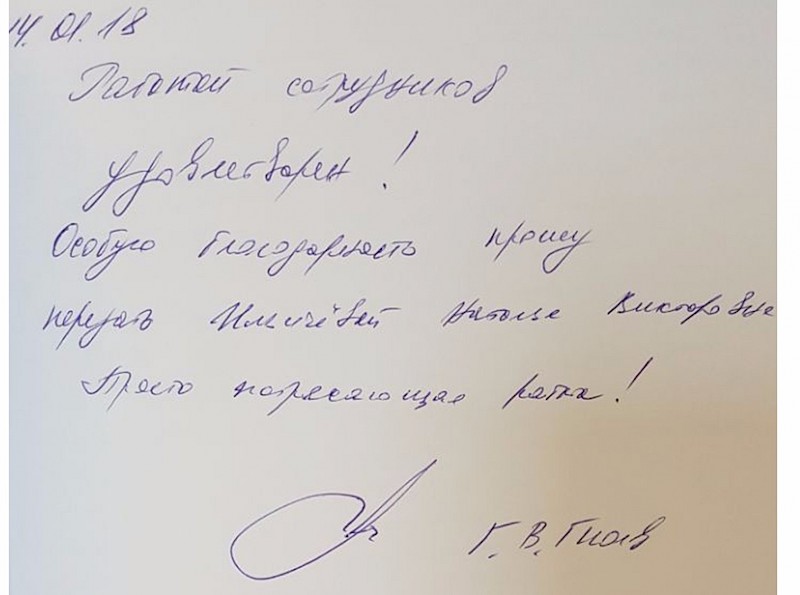 14.01.18
Работой сотрудников
удовлетворен!
Особую благодарность прошу
передать Ильичёвой Наталье Викторовне
Просто потрясающая
Г. В.